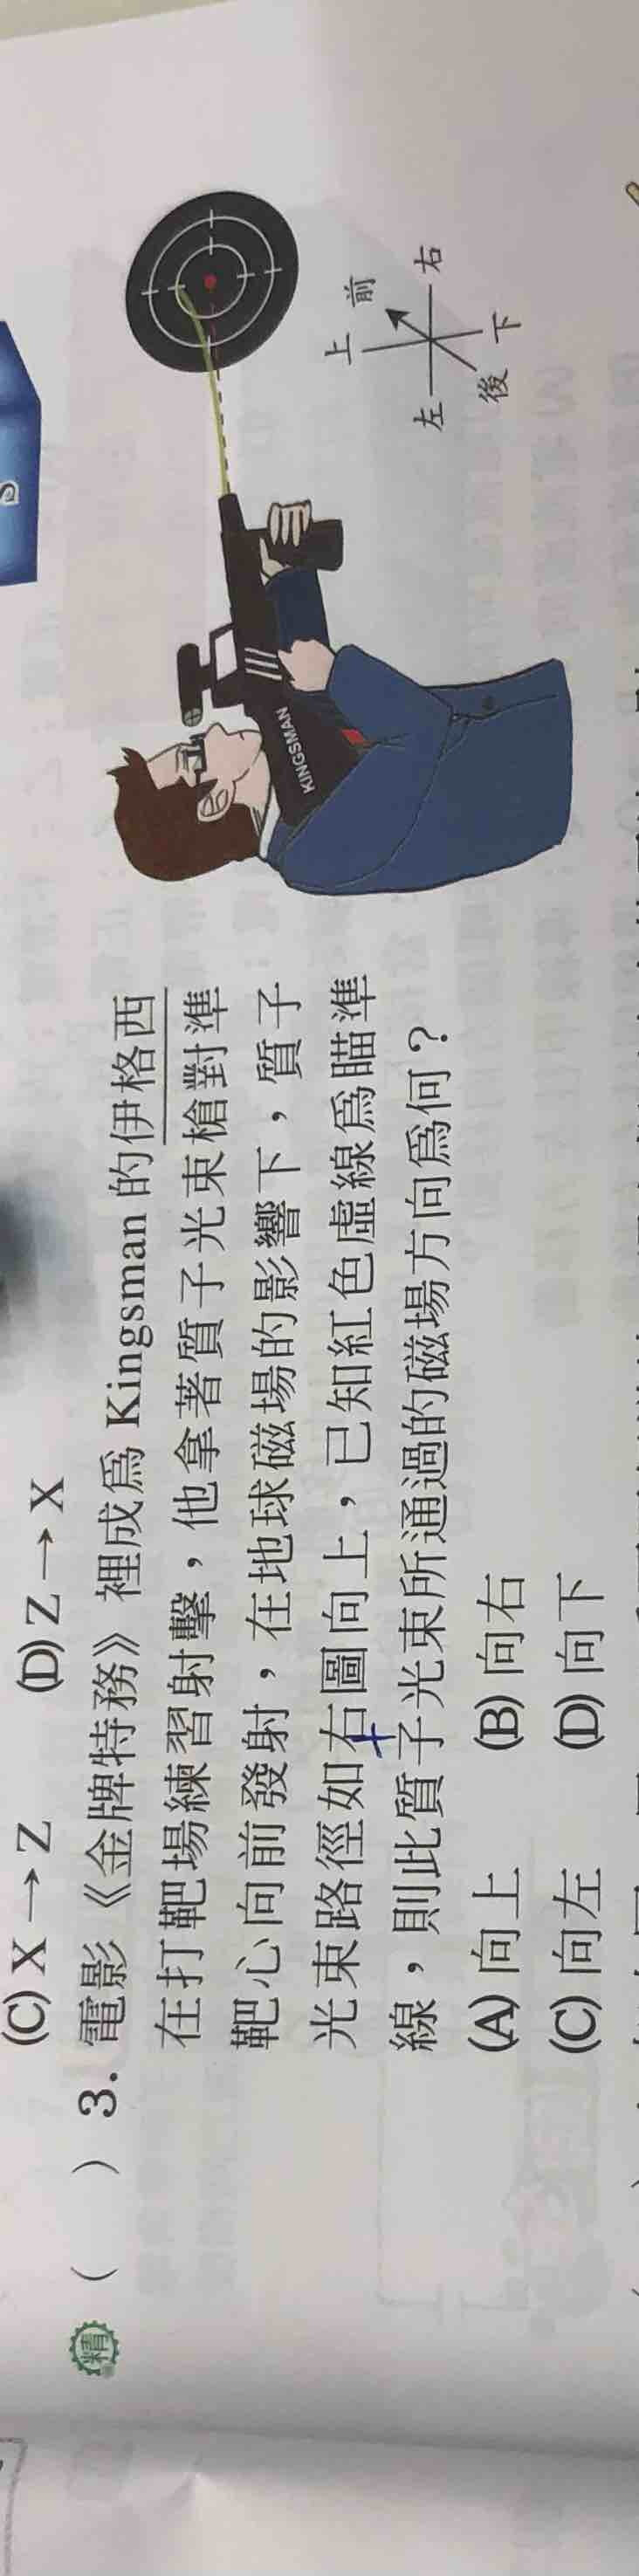 (C) X → Z (D) Z → X
精 ( ) 3. 電影《金牌特務》裡成爲 Kingsman 的伊格西
在打靶場練習射擊，他拿著質子光束槍對準
靶心向前發射，在地球磁場的影響下，質子
光束路徑如右圖向上，已知紅色虛線爲瞄準
線，則此質子光束所通過的磁場方向爲何？
(A) 向上 (B) 向右
(C) 向左 (D) 向下
KINGSMAN
上 前
左 右
後 下